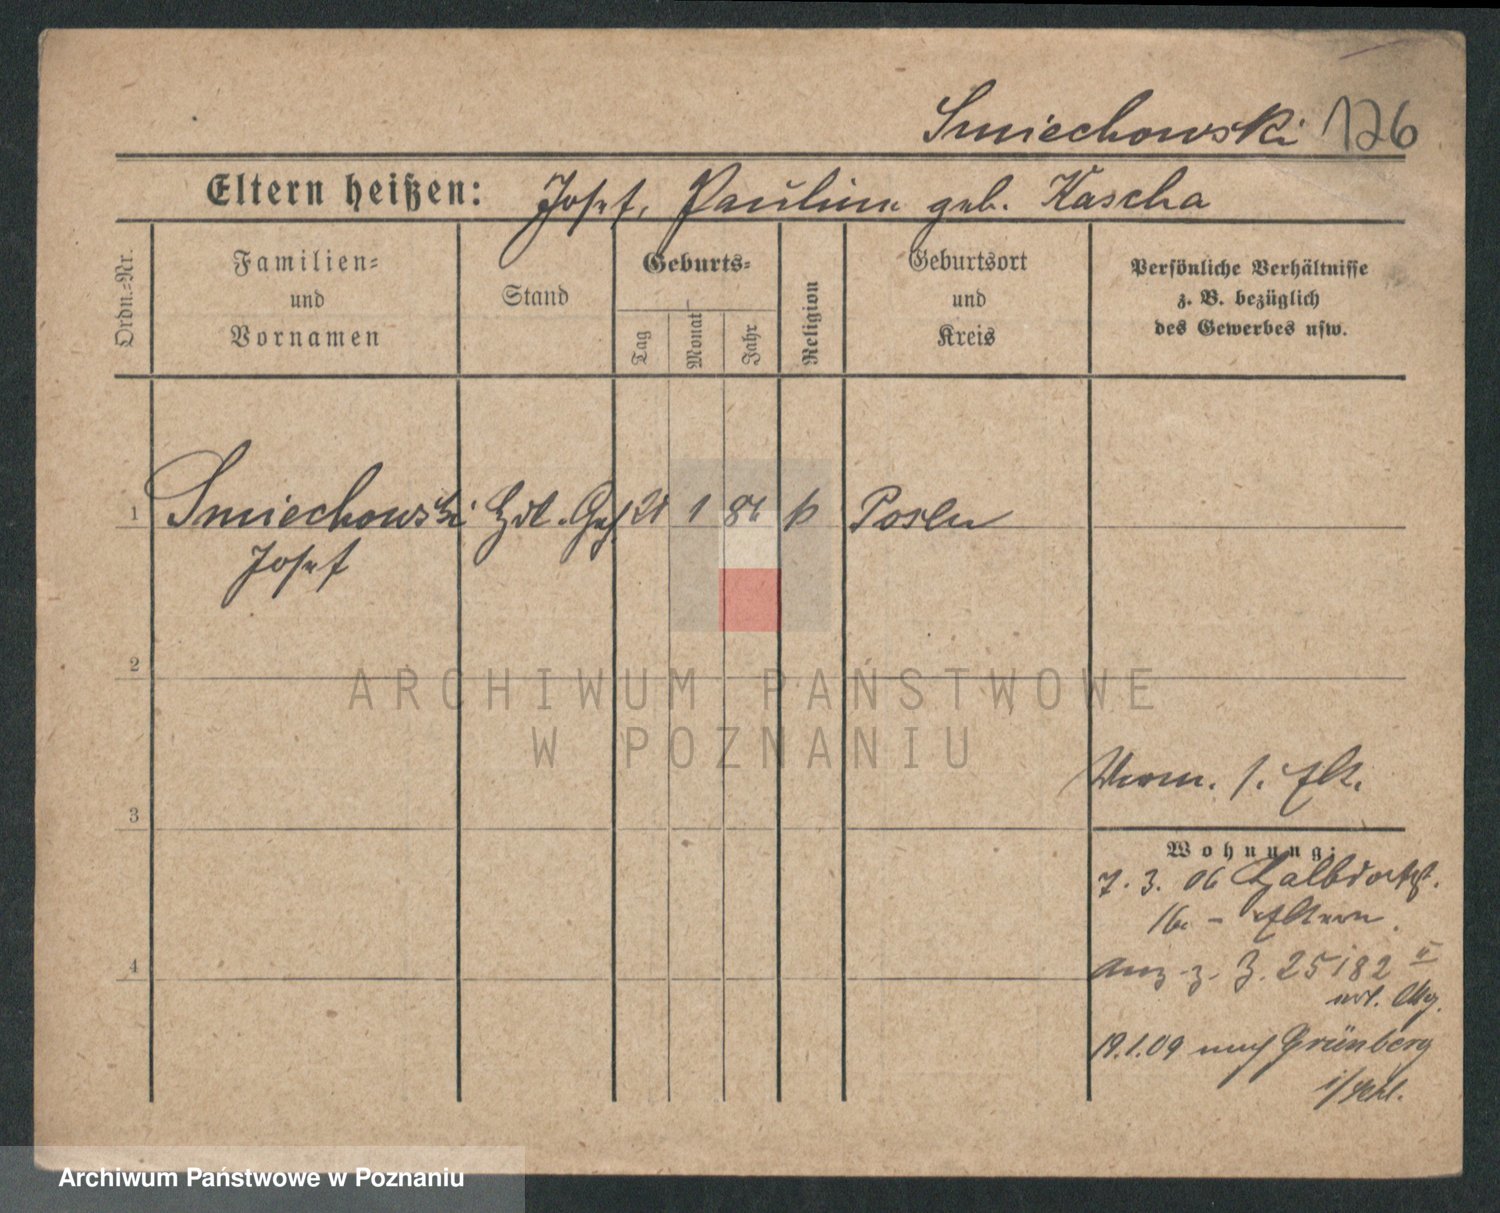 Smiechowski 126
Eltern heißen: Josef, Pauline geb. Kascha
Ordn.=Nr.
Familien=
und
Vornamen
Stand
Geburts=
Tag
Monat
Jahr
Religion
Geburtsort
und
Kreis
Persönliche Verhältnisse
z. B. bezüglich
des Gewerbes usw.
1 Smiechowski Hdl. Geh. 21 1 86 k Posen
Josef
2
ARCHIWUM PAŃSTWOWE
W POZNANIU
3
Verm. s. Elt.
Wohnung:
7. 3. 06 Halbdorfst.
16 - Eltern.
4
Anz. z. Z. 25182 II
19.1.09 nach Grünberg
i/Schl.
Archiwum Państwowe w Poznaniu